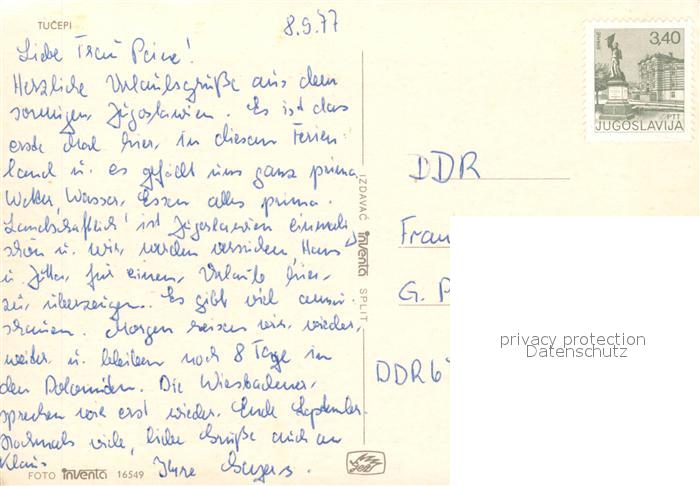 TUČEPI
8.9.77
Liebe Frau
Herzliche Urlaubsgrüße aus dem
sonnigen Jugoslawien. Es ist das
erste Mal hier, in diesem Ferien-
land u. es gefällt uns ganz prima.
Wetter, Wasser, Essen alles prima.
Landschaftlich ist Jugoslawien einmalig
schön u. wir werden versuchen, Hans
u. Jutta, für einen Urlaub hier
zu überzeugen. Es gibt viel anzu-
schauen. Morgen reisen wir wieder,
weiter u. bleiben noch 8 Tage in
den Dolomiten. Die Wiesbadener
sprechen wir erst wieder Ende September.
Nochmals viele, liebe Grüße auch an
Klaus Ihre
FOTO inventa 16549
IZDAVAČ inventa SPLIT
3,40
PTT
JUGOSLAVIJA
DDR
Fran
G. P
DDR 6
privacy protection
Datenschutz